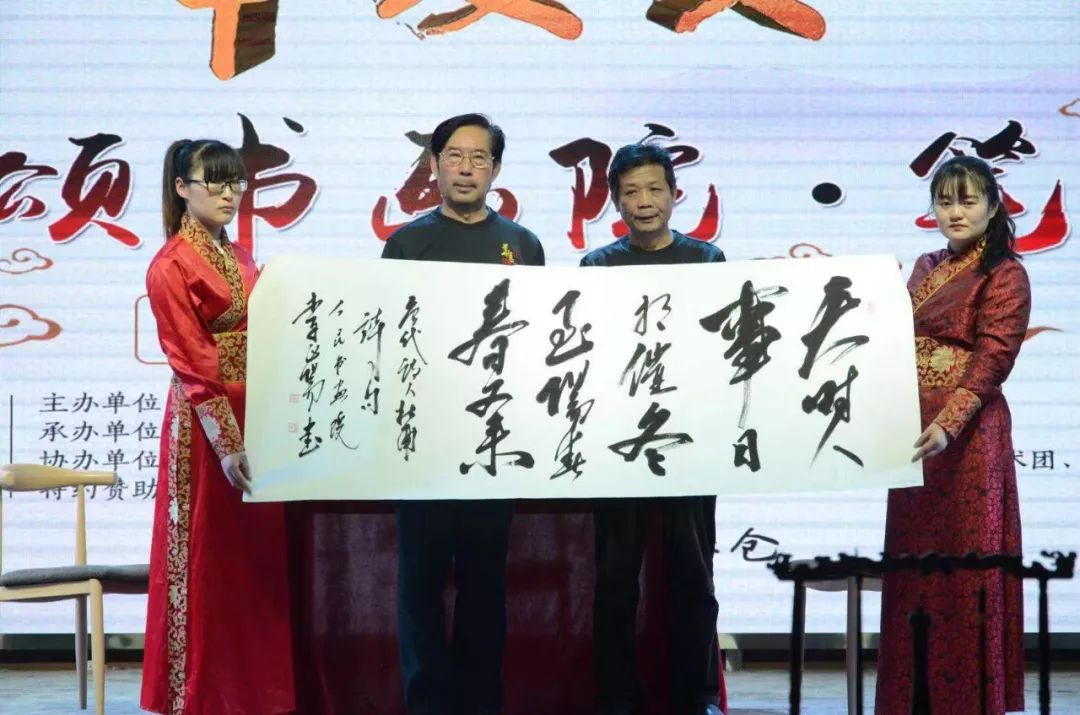 颂书画院·笔
天时人
事日
相催冬
至陽生
春又来
唐代诗人杜甫
诗句
人民书画院
主办单位
承办单位
协办单位
特约赞助
术团、
仓